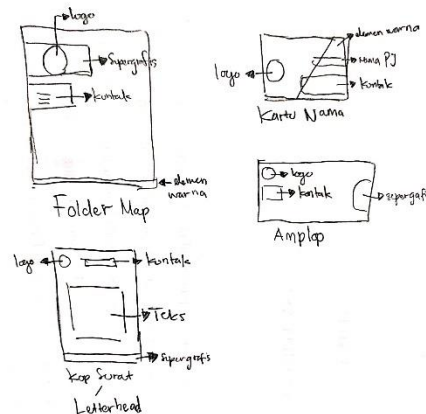 logo
Supergrafis
kontak
elemen
warna
Folder Map
elemen warna
logo
nama PJ
kontak
Kartu Nama
logo
kontak
supergrafis
Amplop
logo
kontak
Teks
supergrafis
Kop Surat
/
Letterhead